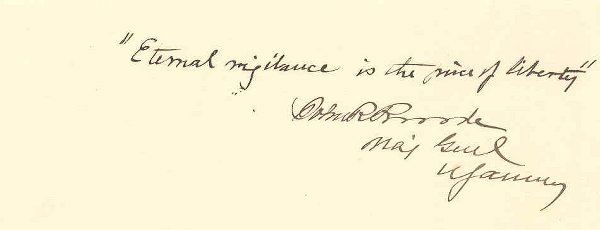 "Eternal vigilance is the price of liberty"
John R Brooke
Maj Genl
U S Army